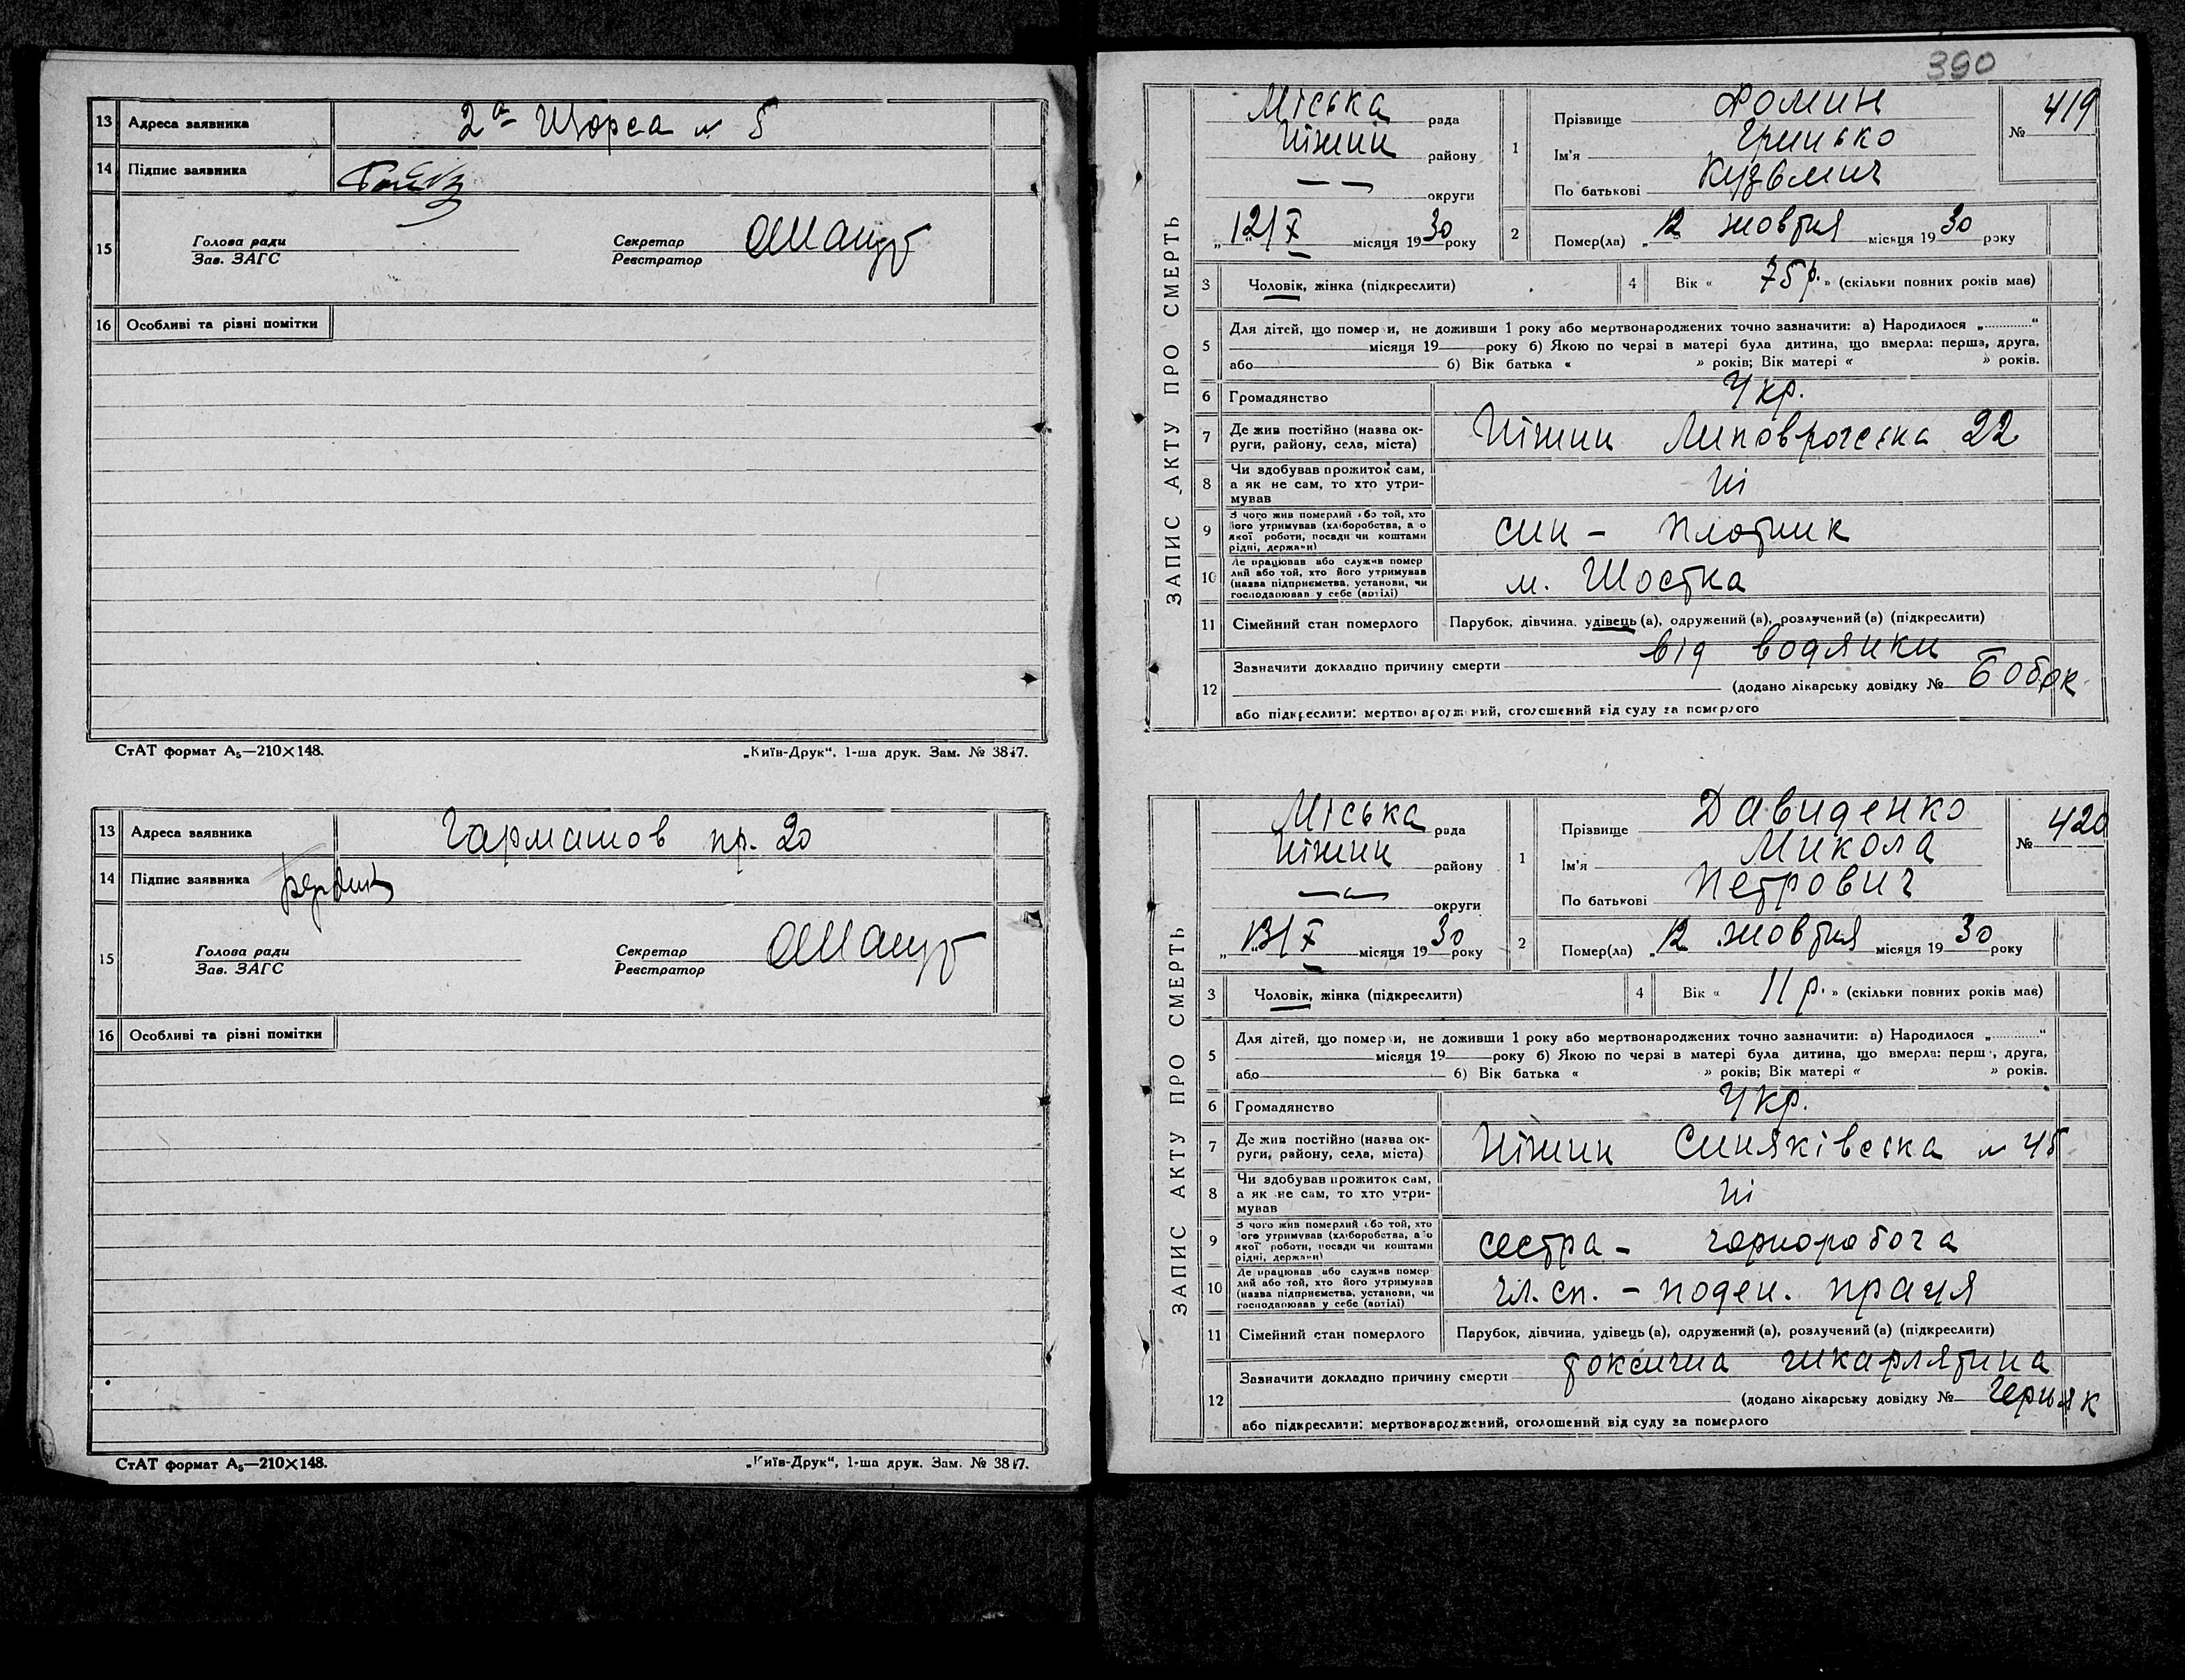 13 Адреса заявника 2а Щорса № 5
14 Підпис заявника
15 Голова ради Секретар
Зав. ЗАГС Реєстратор
16 Особливі та різні помітки
СтАТ формат А₅—210×148. „Київ-Друк“, 1-ша друк. Зам. № 3847.
13 Адреса заявника Гармашов пр. 20
14 Підпис заявника
15 Голова ради Секретар
Зав. ЗАГС Реєстратор
16 Особливі та різні помітки
СтАТ формат А₅—210×148. „Київ-Друк“, 1-ша друк. Зам. № 3847.
390
ЗАПИС АКТУ ПРО СМЕРТЬ
Міська рада
Ніжин району
— — округи
„12/X місяця 1930 року
1 Прізвище Фомин
Ім'я Гринько
По батькові Кузьмич
№ 419
2 Помер(ла) „12 жовтня місяця 1930 року
3 Чоловік, жінка (підкреслити)
4 Вік « 75 р. » (скільки повних років має)
5 Для дітей, що померли, не доживши 1 року або мертвонароджених точно зазначити: а) Народилося „............“
місяця 19 року б) Якою по черзі в матері була дитина, що вмерла: перша, друга,
або б) Вік батька « » років; Вік матері « » років.
6 Громадянство Укр.
7 Де жив постійно (назва округи, району, села, міста) Ніжин Липоврогська 22
8 Чи здобував прожиток сам, а як не сам, то хто утримував Ні
9 З чого жив померлий або той, хто його утримував (хліборобства, або якої роботи, посади чи коштами рідні, держави) син - плотник
10 Де працював або служив померлий або той, хто його утримував (назва підприємства, установи, чи господарював у себе (артілі) м. Шостка
11 Сімейний стан померлого Парубок, дівчина, удівець (а), одружений (а), розлучений (а) (підкреслити)
12 Зазначити докладно причину смерти від водянки
(додано лікарську довідку № Бобок
або підкреслити: мертвонароджений, оголошений від суду за померлого
ЗАПИС АКТУ ПРО СМЕРТЬ
Міська рада
Ніжин району
— — округи
„13/X місяця 1930 року
1 Прізвище Давиденко
Ім'я Микола
По батькові Петрович
№ 420
2 Помер(ла) „12 жовтня місяця 1930 року
3 Чоловік, жінка (підкреслити)
4 Вік « 11 р. » (скільки повних років має)
5 Для дітей, що померли, не доживши 1 року або мертвонароджених точно зазначити: а) Народилося „............“
місяця 19 року б) Якою по черзі в матері була дитина, що вмерла: перша, друга,
або б) Вік батька « » років; Вік матері « » років.
6 Громадянство Укр.
7 Де жив постійно (назва округи, району, села, міста) Ніжин Синяківська № 45
8 Чи здобував прожиток сам, а як не сам, то хто утримував Ні
9 З чого жив померлий або той, хто його утримував (хліборобства, або якої роботи, посади чи коштами рідні, держави) сестра - чорноробоча
10 Де працював або служив померлий або той, хто його утримував (назва підприємства, установи, чи господарював у себе (артілі) чл. сп. - поден. праця
11 Сімейний стан померлого Парубок, дівчина, удівець (а), одружений (а), розлучений (а) (підкреслити)
12 Зазначити докладно причину смерти токсична шкарлятина
(додано лікарську довідку № Черняк
або підкреслити: мертвонароджений, оголошений від суду за померлого